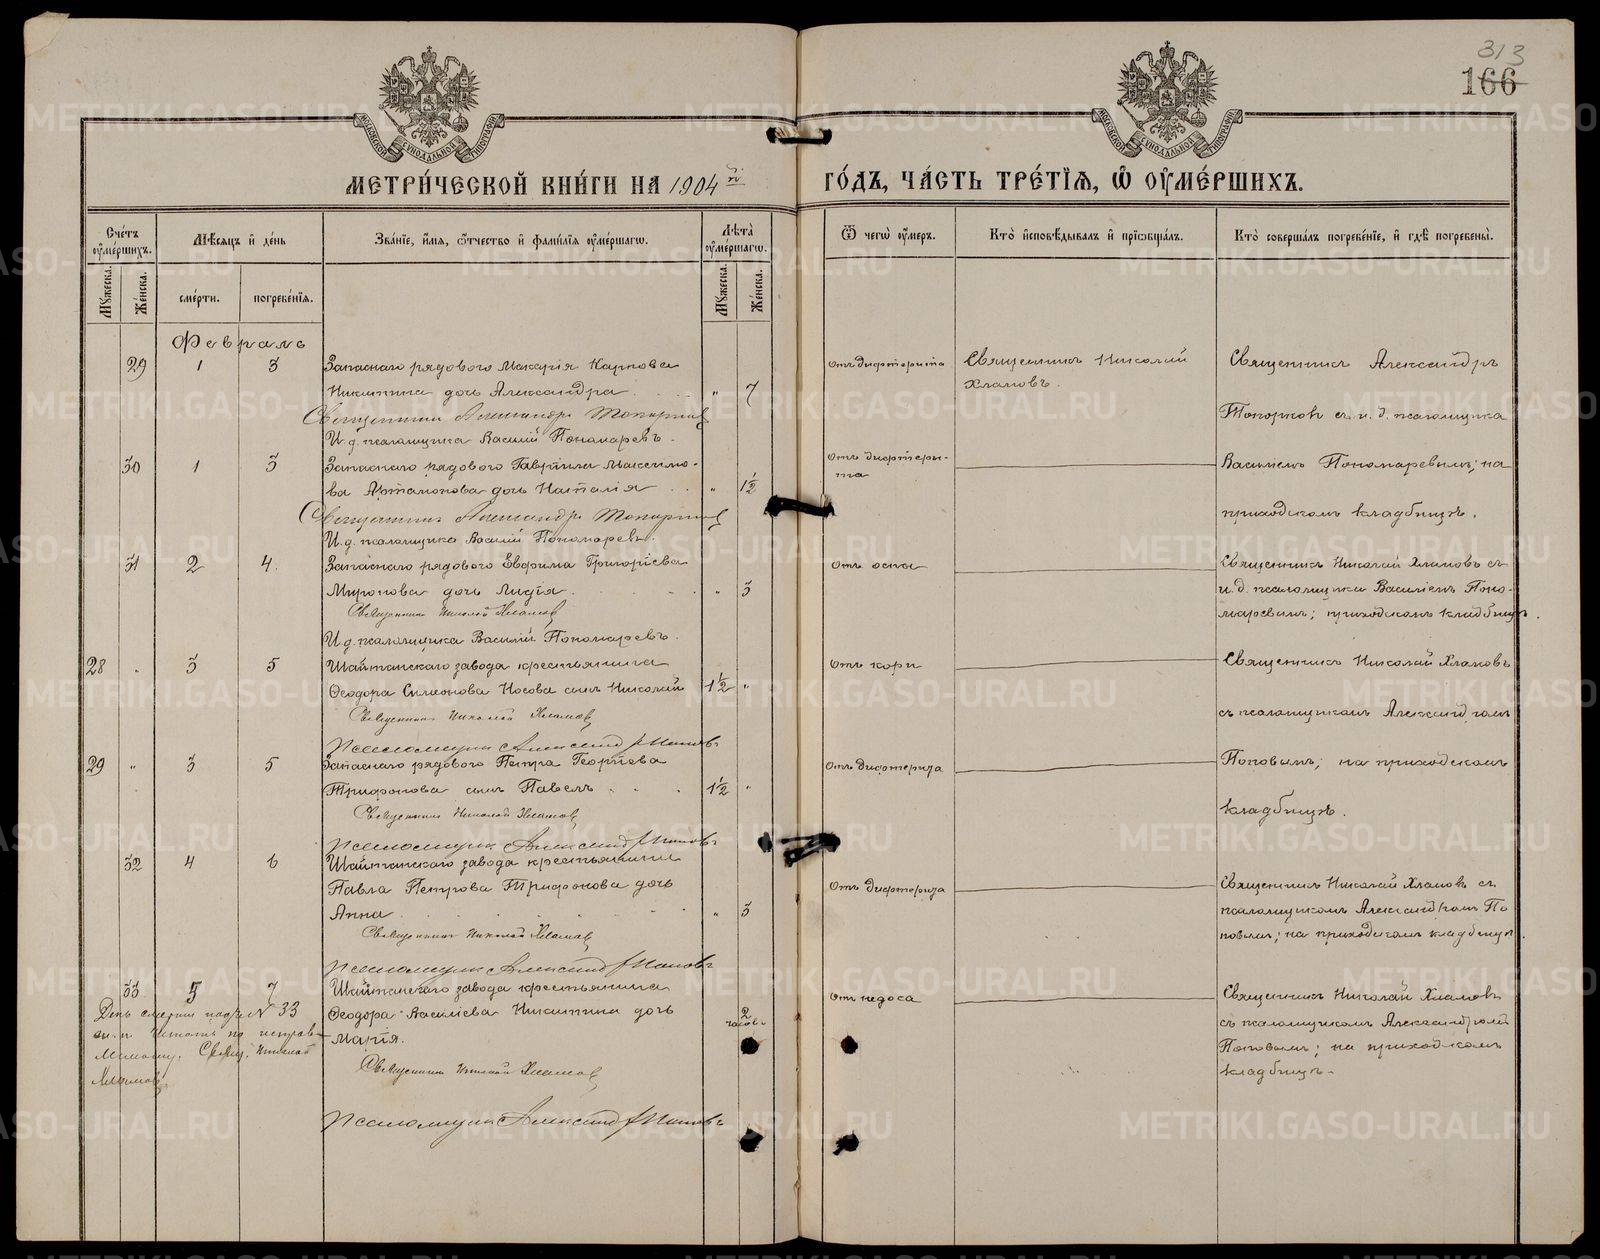 313
166
МОСКОВСКОЙ СѴНОДАЛЬНОЙ ТИПОГРАФІИ
МОСКОВСКОЙ СѴНОДАЛЬНОЙ ТИПОГРАФІИ
МЕТРИ́ЧЕСКОЙ КНИ́ГИ НА 1904 й
ГО́ДЪ, ЧА́СТЬ ТРЕ́ТІѦ, Ѡ҆ ОУ҆МЕ́РШИХЪ.
Сче́тъ оу҆ме́ршихъ.
Мѣ́сѧцъ и҆ де́нь
Зва́нїе, и҆́мѧ, ѻ҆́тчество и҆ фами́лїѧ оу҆ме́ршагѡ.
Лѣ́та оу҆ме́ршагѡ.
Ѿ чегѡ̀ оу҆́меръ.
Кто̀ и҆сповѣ́дывалъ и҆ прїѡбща́лъ.
Кто̀ соверша́лъ погребе́нїе, и҆ гдѣ̀ погребены̀.
Мꙋ́жеска.
Же́нска.
сме́рти.
погребе́нїѧ.
Мꙋ́жеска.
Же́нска.
Февраль
29 1 3 Запаснаго рядового Макарія Карпова
Никитина дочь Александра " 7
Священникъ Александръ Топорковъ
И. д. псаломщика Василій Пономаревъ.
Отъ дифтерита
Священникъ Николай
Хламовъ.
Священникъ Александръ
Топорковъ съ и. д. псаломщика
Василіемъ Пономаревымъ; на
приходскомъ кладбищѣ.
30 1 3 Запаснаго рядового Гавріила Максимо-
ва Артамонова дочь Наталія " 1½
Священникъ Александръ Топорковъ
И. д. псаломщика Василій Пономаревъ.
Отъ дифтери-
та
31 2 4. Запаснаго рядового Евфима Григоріева
Миронова дочь Лидія " 3
Священникъ Николай Хламовъ
И. д. псаломщика Василій Пономаревъ.
Отъ оспы
Священникъ Николай Хламовъ съ
и. д. псаломщика Василіемъ Поно-
маревымъ; приходскомъ кладбищѣ.
28 " 3 5 Шайтанскаго завода крестьянина
Ѳеодора Симонова Носова сынъ Николай 1½ "
Священникъ Николай Хламовъ
Псаломщикъ Александръ Поповъ
Отъ кори
Священникъ Николай Хламовъ
съ псаломщикомъ Александромъ
Поповымъ; на приходскомъ
кладбищѣ.
29 " 3 5 Запаснаго рядового Петра Георгіева
Трифонова сынъ Павелъ 1½ "
Священникъ Николай Хламовъ
Псаломщикъ Александръ Поповъ
Отъ дифтерита
32 4 6 Шайтанскаго завода крестьянина
Павла Петрова Трифонова дочь
Анна " 3
Священникъ Николай Хламовъ
Псаломщикъ Александръ Поповъ
Отъ дифтерита
Священникъ Николай Хламовъ съ
псаломщикомъ Александромъ По-
повымъ; на приходскомъ кладбищѣ.
33 5 7 Шайтанскаго завода крестьянина
Ѳеодора Василіева Никитина дочь
Марія.
2 часовъ
Священникъ Николай Хламовъ
Псаломщикъ Александръ Поповъ
День смерти подъ № 33
читать по исправ-
ленному. Свящ. Николай
Хламовъ
Отъ недоноса
Священникъ Николай Хламовъ
съ псаломщикомъ Александромъ
Поповымъ; на приходскомъ
кладбищѣ.
METRIKI.GASO-URAL.RU